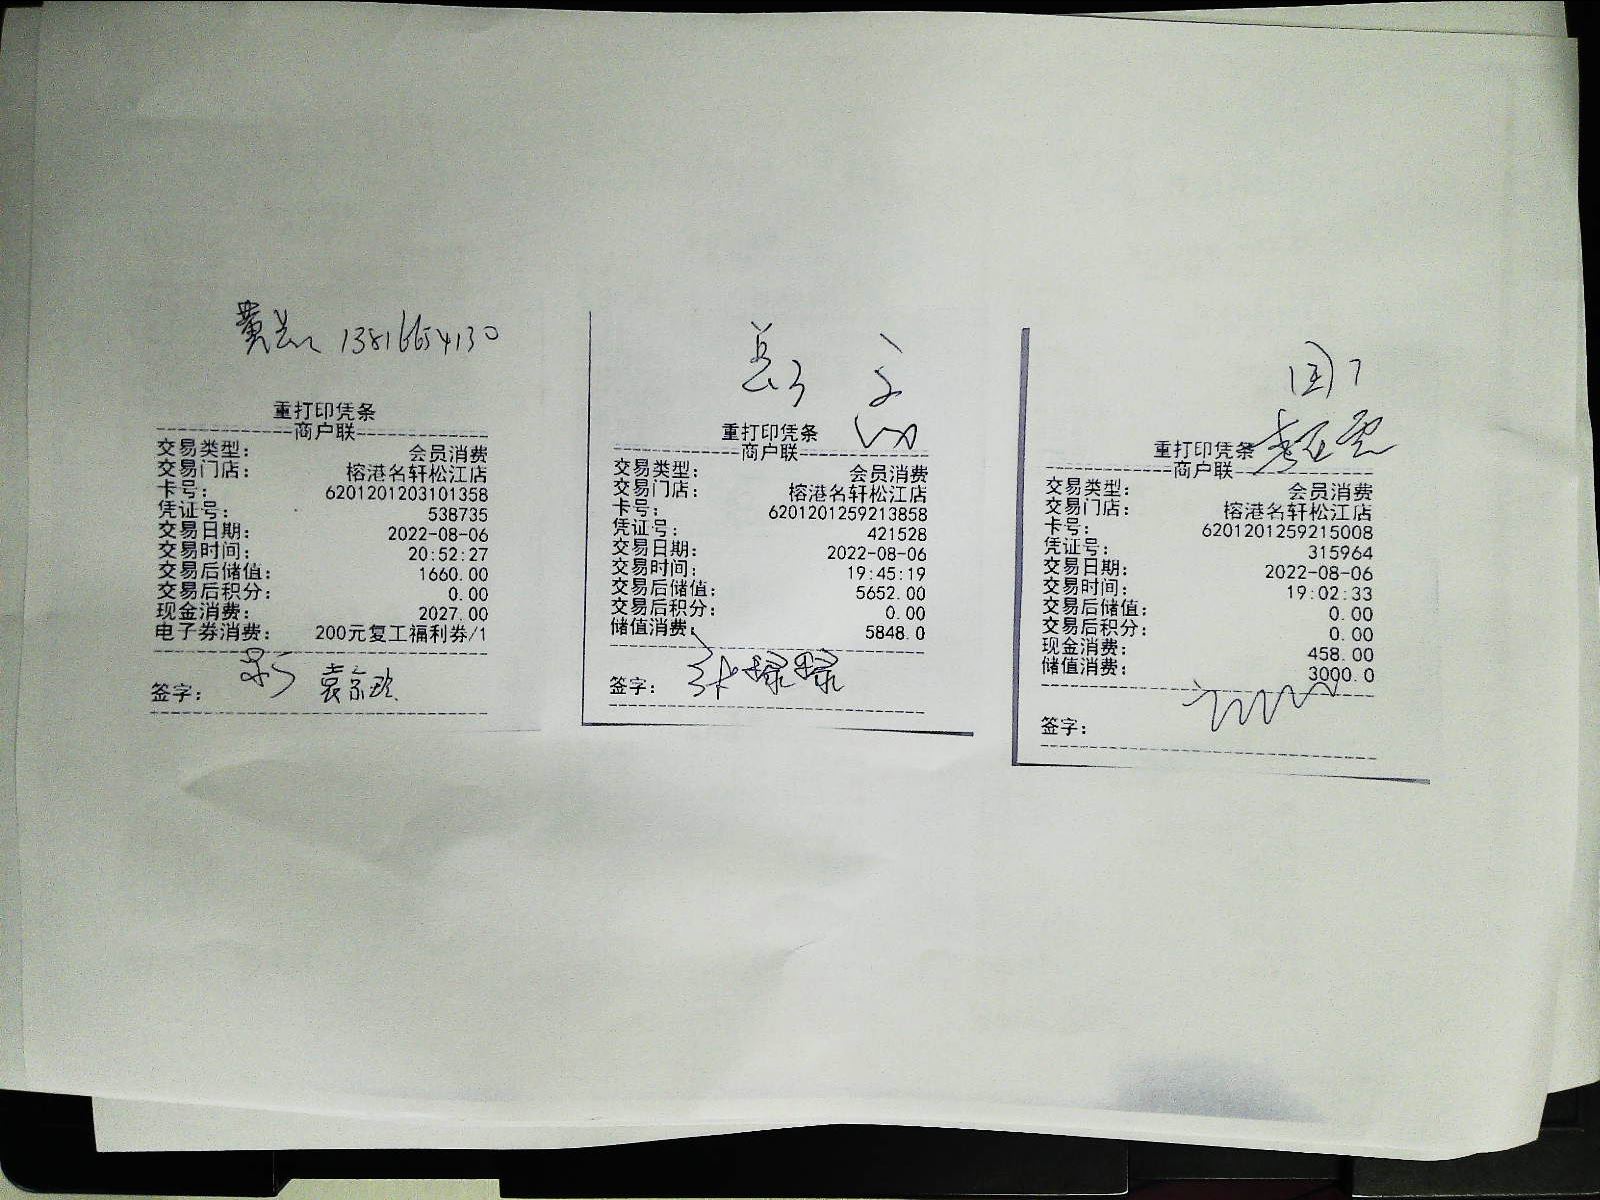 黄 13816654130
重打印凭条
商户联
交易类型: 会员消费
交易门店: 榕港名轩松江店
卡号: 6201201203101358
凭证号: 538735
交易日期: 2022-08-06
交易时间: 20:52:27
交易后储值: 1660.00
交易后积分: 0.00
现金消费: 2027.00
电子券消费: 200元复工福利券/1
签字:
重打印凭条
商户联
交易类型: 会员消费
交易门店: 榕港名轩松江店
卡号: 6201201259213858
凭证号: 421528
交易日期: 2022-08-06
交易时间: 19:45:19
交易后储值: 5652.00
交易后积分: 0.00
储值消费: 5848.0
签字:
重打印凭条
商户联
交易类型: 会员消费
交易门店: 榕港名轩松江店
卡号: 6201201259215008
凭证号: 315964
交易日期: 2022-08-06
交易时间: 19:02:33
交易后储值: 0.00
交易后积分: 0.00
现金消费: 458.00
储值消费: 3000.0
签字: